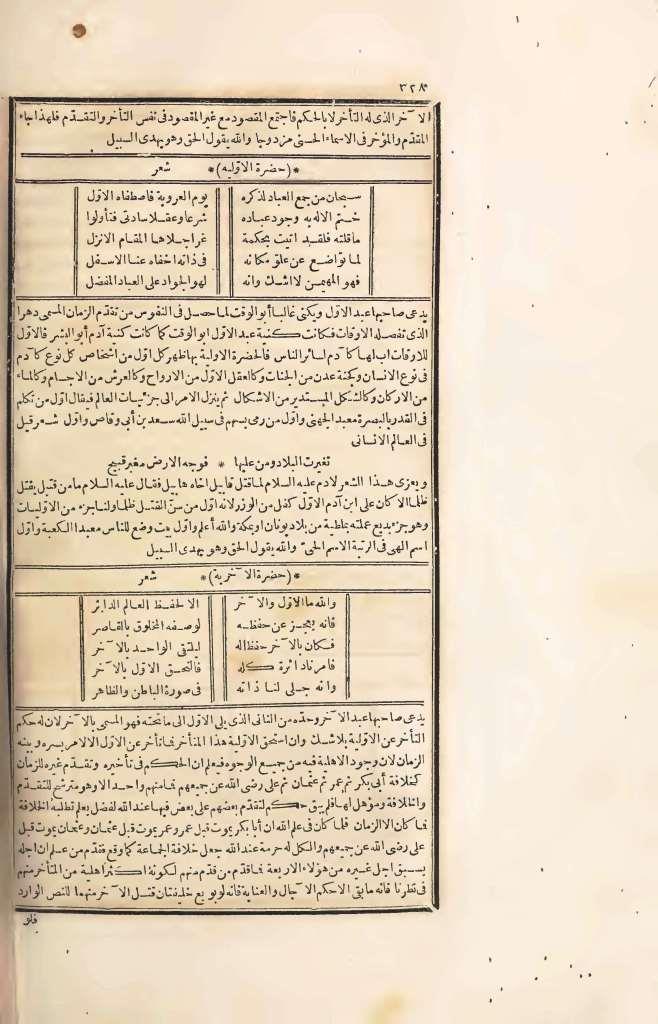 ٣٢٨
الآخر الذى له التأخر لا بالحكم فاجتمع المقصود مع غير المقصود فى نفس التأخر والتقدّم فلهذا جاء
المقدّم والمؤخر فى الاسماء الحسنى مزدوجا والله يقول الحق وهو يهدى السبيل
*(حضرة الاولية)* شعر
سبحان من جمع العباد لذكره يوم العروبة فاصطفاه الاول
ختم الاله به وجود عباده شرعا وعقلا سادتى فتأولوا
ما قلته فلقد اتيت بحكمة غرا جلاها المقام الانزل
لما تواضع عن علوّ مكانه فى ذاته اخفاه عنا الاسفل
فهو المهيمن لا اشك وانه لهو الجواد على العباد المفضل
يدعى صاحبها عبد الاول ويكنى غالبا أبو الوقت لما حصل فى النفوس من تقدّم الزمان المسمى دهرا
الذى تفصله الاوقات فكانت كنية عبد الاول ابو الوقت كما كانت كنية آدم أبو البشر فالاول
للاوقات اب لها كآدم لسائر الناس فالحضرة الاولية بها ظهر كل اول من اشخاص كل نوع كآدم
فى نوع الانسان وكجنة عدن من الجنات وكالعقل الاوّل من الارواح وكالعرش من الاجسام وكالماء
من الاركان وكالشكل المستدير من الاشكال ثم ينزل الامر الى جزئيات العالم فيقال اول من تكلم
فى القدر بالبصرة معبد الجهنى واول من رمى بسهم فى سبيل الله سعد بن أبى وقاص واول شعر قيل
فى العالم الانسانى
تغيرت البلاد ومن عليها * فوجه الارض مغبر قبيح
ويعزى هذا الشعر لآدم عليه السلام لما قتل قابيل اخاه هابيل فقال عليه السلام ما من قتيل يقتل
ظلما الا كان على ابن آدم الاوّل كفل من الوزر لانه اول من سنّ القتل ظلما ولنا جزء من الاوليات
وهو جزء بديع عملته بملطية من بلاد يونان او بمكة والله أعلم واول بيت وضع للناس معبدا الكعبة واول
اسم الهى فى الرتبة الاسم الحىّ والله يقول الحق وهو يهدى السبيل
*(حضرة الآخرية)* شعر
والله ما الاول والآخر الا لحفظ العالم الدائر
فانه يعجز عن حفظه لوصفه المخلوق بالقاصر
فكان بالآخر حفظ اله ليلتقى الواحد بالآخر
فامرنا دائرة كله فالتحق الاول بالآخر
وانه جلى لنا ذاته فى صورة الباطن والظاهر
يدعى صاحبها عبد الآخر وحده من الثانى الذى يلى الاول الى ما تحته فهو المسمى بالآخر لان له حكم
التأخر عن الاولية بلا شك وان استحق الاولية هذا المتأخر فما تأخر عن الاول الا لامر يسره وبينه
الزمان لان وجود الاهلية فيه من جميع الوجوه فيعلم ان الحكم فى تأخيره وتقدّم غيره للزمان
كخلافة أبى بكر ثم عمر ثم عثمان ثم على رضى الله عن جميعهم فما منهم واحد الا وهو مترشح للتقدّم
والخلافة ومؤهل لها فلم يبق حكم لتقدّم بعضهم على بعض فيها عند الله لفضل يعلم تطلبه الخلافة
فما كان الا الزمان فلما كان فى علم الله ان أبا بكر يموت قبل عمر وعمر يموت قبل عثمان وعثمان يموت قبل
على رضى الله عن جميعهم والكل له حرمة عند الله جعل خلافة الجماعة كما وقع فقدّم من علم ان اجله
يسبق اجل غيره من هؤلاء الاربعة فما قدم من قدم منهم لكونه اكثر اهلية من المتأخر منهم
فى نظرنا فانه ما بقى الا حكم الآجال والعناية فانه لو بويع خليفتان قتل الآخر منهما للنص الوارد
فلو